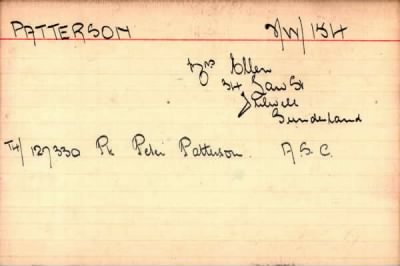 PATTERSON 2/W/154
Mrs Ellen
34 Law St
Fulwell
Sunderland
T4/127330 Pte Peter Patterson. A.S.C.